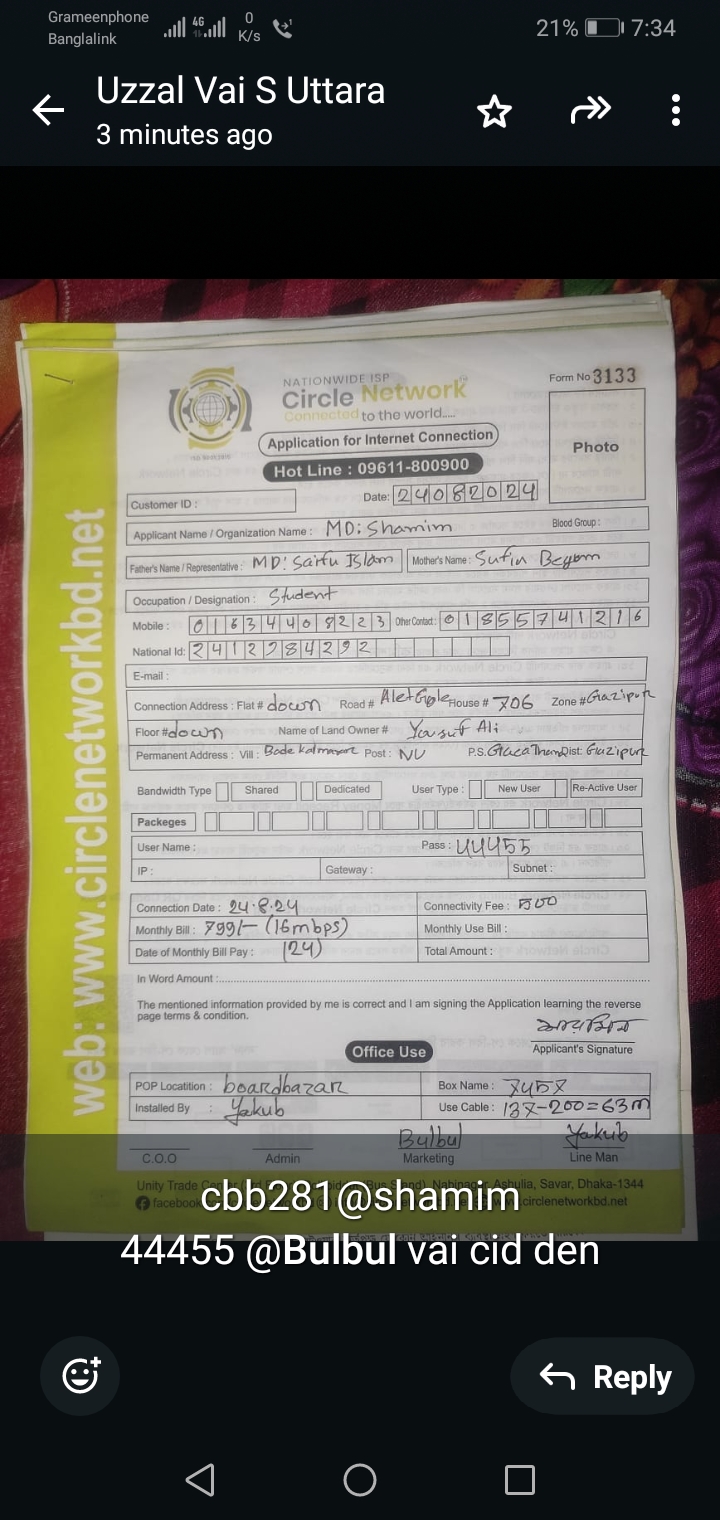 Grameenphone
Banglalink
4G
0
K/s
1
21%
7:34
Uzzal Vai S Uttara
3 minutes ago
NATIONWIDE ISP
Circle Network
Connected to the world.....
Form No 3133
Application for Internet Connection
Hot Line : 09611-800900
Photo
Customer ID :
Date: 24082024
Applicant Name / Organization Name : MD: Shamim Blood Group :
Father's Name / Representative : MD: Saifu Islam Mother's Name : Sufia Begom
Occupation / Designation : Student
Mobile : 01634408223 Other Contact : 01855741216
National Id: 2412284292
E-mail :
Connection Address : Flat # down Road # House # 706 Zone # Gazipur
Floor # down Name of Land Owner # Yousuf Ali
Permanent Address : Vill : Post : NU P.S. Dist: Gazipur
Bandwidth Type Shared Dedicated User Type : New User Re-Active User
Packeges
User Name : Pass : 44455
IP : Gateway : Subnet :
Connection Date : 24.8.24 Connectivity Fee : 500
Monthly Bill : 799/- (16mbps) Monthly Use Bill :
Date of Monthly Bill Pay : (24) Total Amount :
In Word Amount :
The mentioned information provided by me is correct and I am signing the Application learning the reverse
page terms & condition.
Applicant's Signature
Office Use
POP Locatition : boardbazar Box Name : X45X
Installed By : Yakub Use Cable : 137-200=63m
Bulbul Yakub
C.O.O Admin Marketing Line Man
Unity Trade Nabinagar, Ashulia, Savar, Dhaka-1344
facebook circlenetworkbd.net
web: www.circlenetworkbd.net
cbb281@shamim
44455 @Bulbul vai cid den
Reply